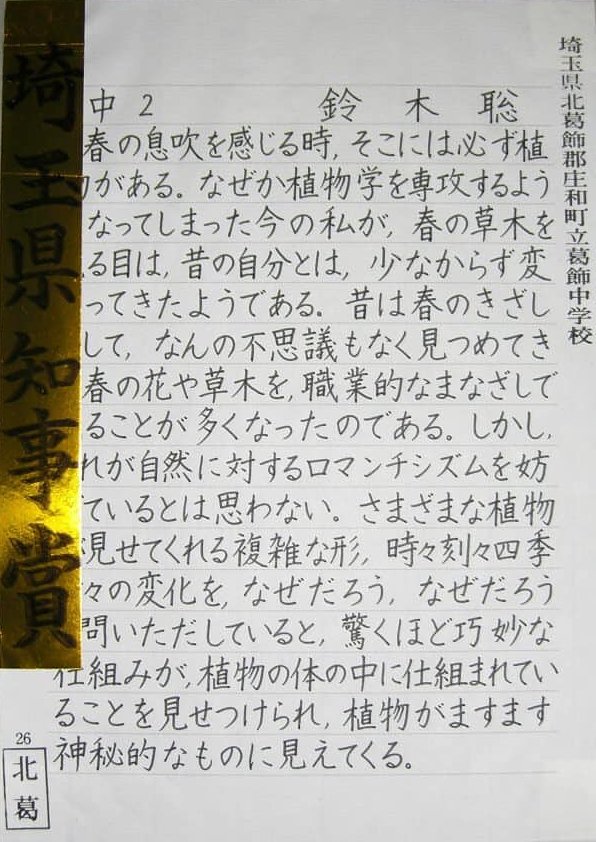 埼玉県北葛飾郡庄和町立葛飾中学校
埼玉県知事賞
中2 鈴木聡
春の息吹を感じる時,そこには必ず植
がある。なぜか植物学を専攻するよう
なってしまった今の私が,春の草木を
る目は,昔の自分とは,少なからず変
ってきたようである。昔は春のきざし
して,なんの不思議もなく見つめてき
春の花や草木を,職業的なまなざしで
ることが多くなったのである。しかし,
れが自然に対するロマンチシズムを妨
ているとは思わない。さまざまな植物
見せてくれる複雑な形,時々刻々四季
々の変化を,なぜだろう,なぜだろう
問いただしていると,驚くほど巧妙な
仕組みが,植物の体の中に仕組まれてい
ることを見せつけられ,植物がますます
神秘的なものに見えてくる。
26
北葛